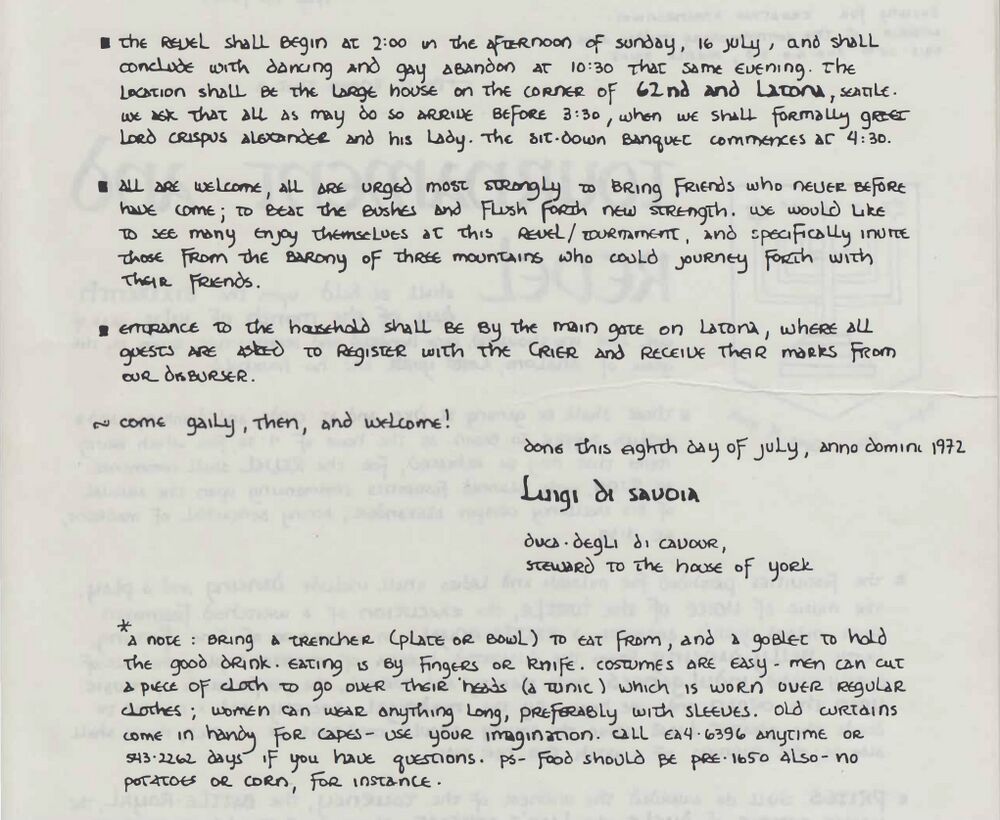 ▪ The Revel shall begin at 2:00 in the afternoon of Sunday, 16 July, and shall
conclude with dancing and gay abandon at 10:30 that same evening. The
location shall be the large house on the corner of 62nd and Latona, Seattle.
We ask that all as may do so arrive before 3:30, when we shall formally greet
Lord Crispus Alexander and his Lady. The sit-down banquet commences at 4:30.
▪ All are welcome, all are urged most strongly to bring friends who never before
have come; to beat the bushes and flush forth new strength. We would like
to see many enjoy themselves at this Revel/Tournament, and specifically invite
those from the Barony of Three Mountains who could journey forth with
their friends.
▪ Entrance to the household shall be by the main gate on Latona, where all
guests are asked to register with the Crier and receive their marks from
our disburser.
~ Come gaily, then, and welcome!
Done this eighth day of July, anno domini 1972
Luigi di Savoia
duca·degli di Cavour,
Steward to the House of York
*A note: Bring a trencher (plate or bowl) to eat from, and a goblet to hold
the good drink. Eating is by fingers or knife. Costumes are easy - men can cut
a piece of cloth to go over their heads (a tunic) which is worn over regular
clothes; women can wear anything long, preferably with sleeves. Old curtains
come in handy for capes - use your imagination. Call EA4·6396 anytime or
543·2262 days if you have questions. PS - Food should be pre·1650 also - no
potatoes or corn, for instance.